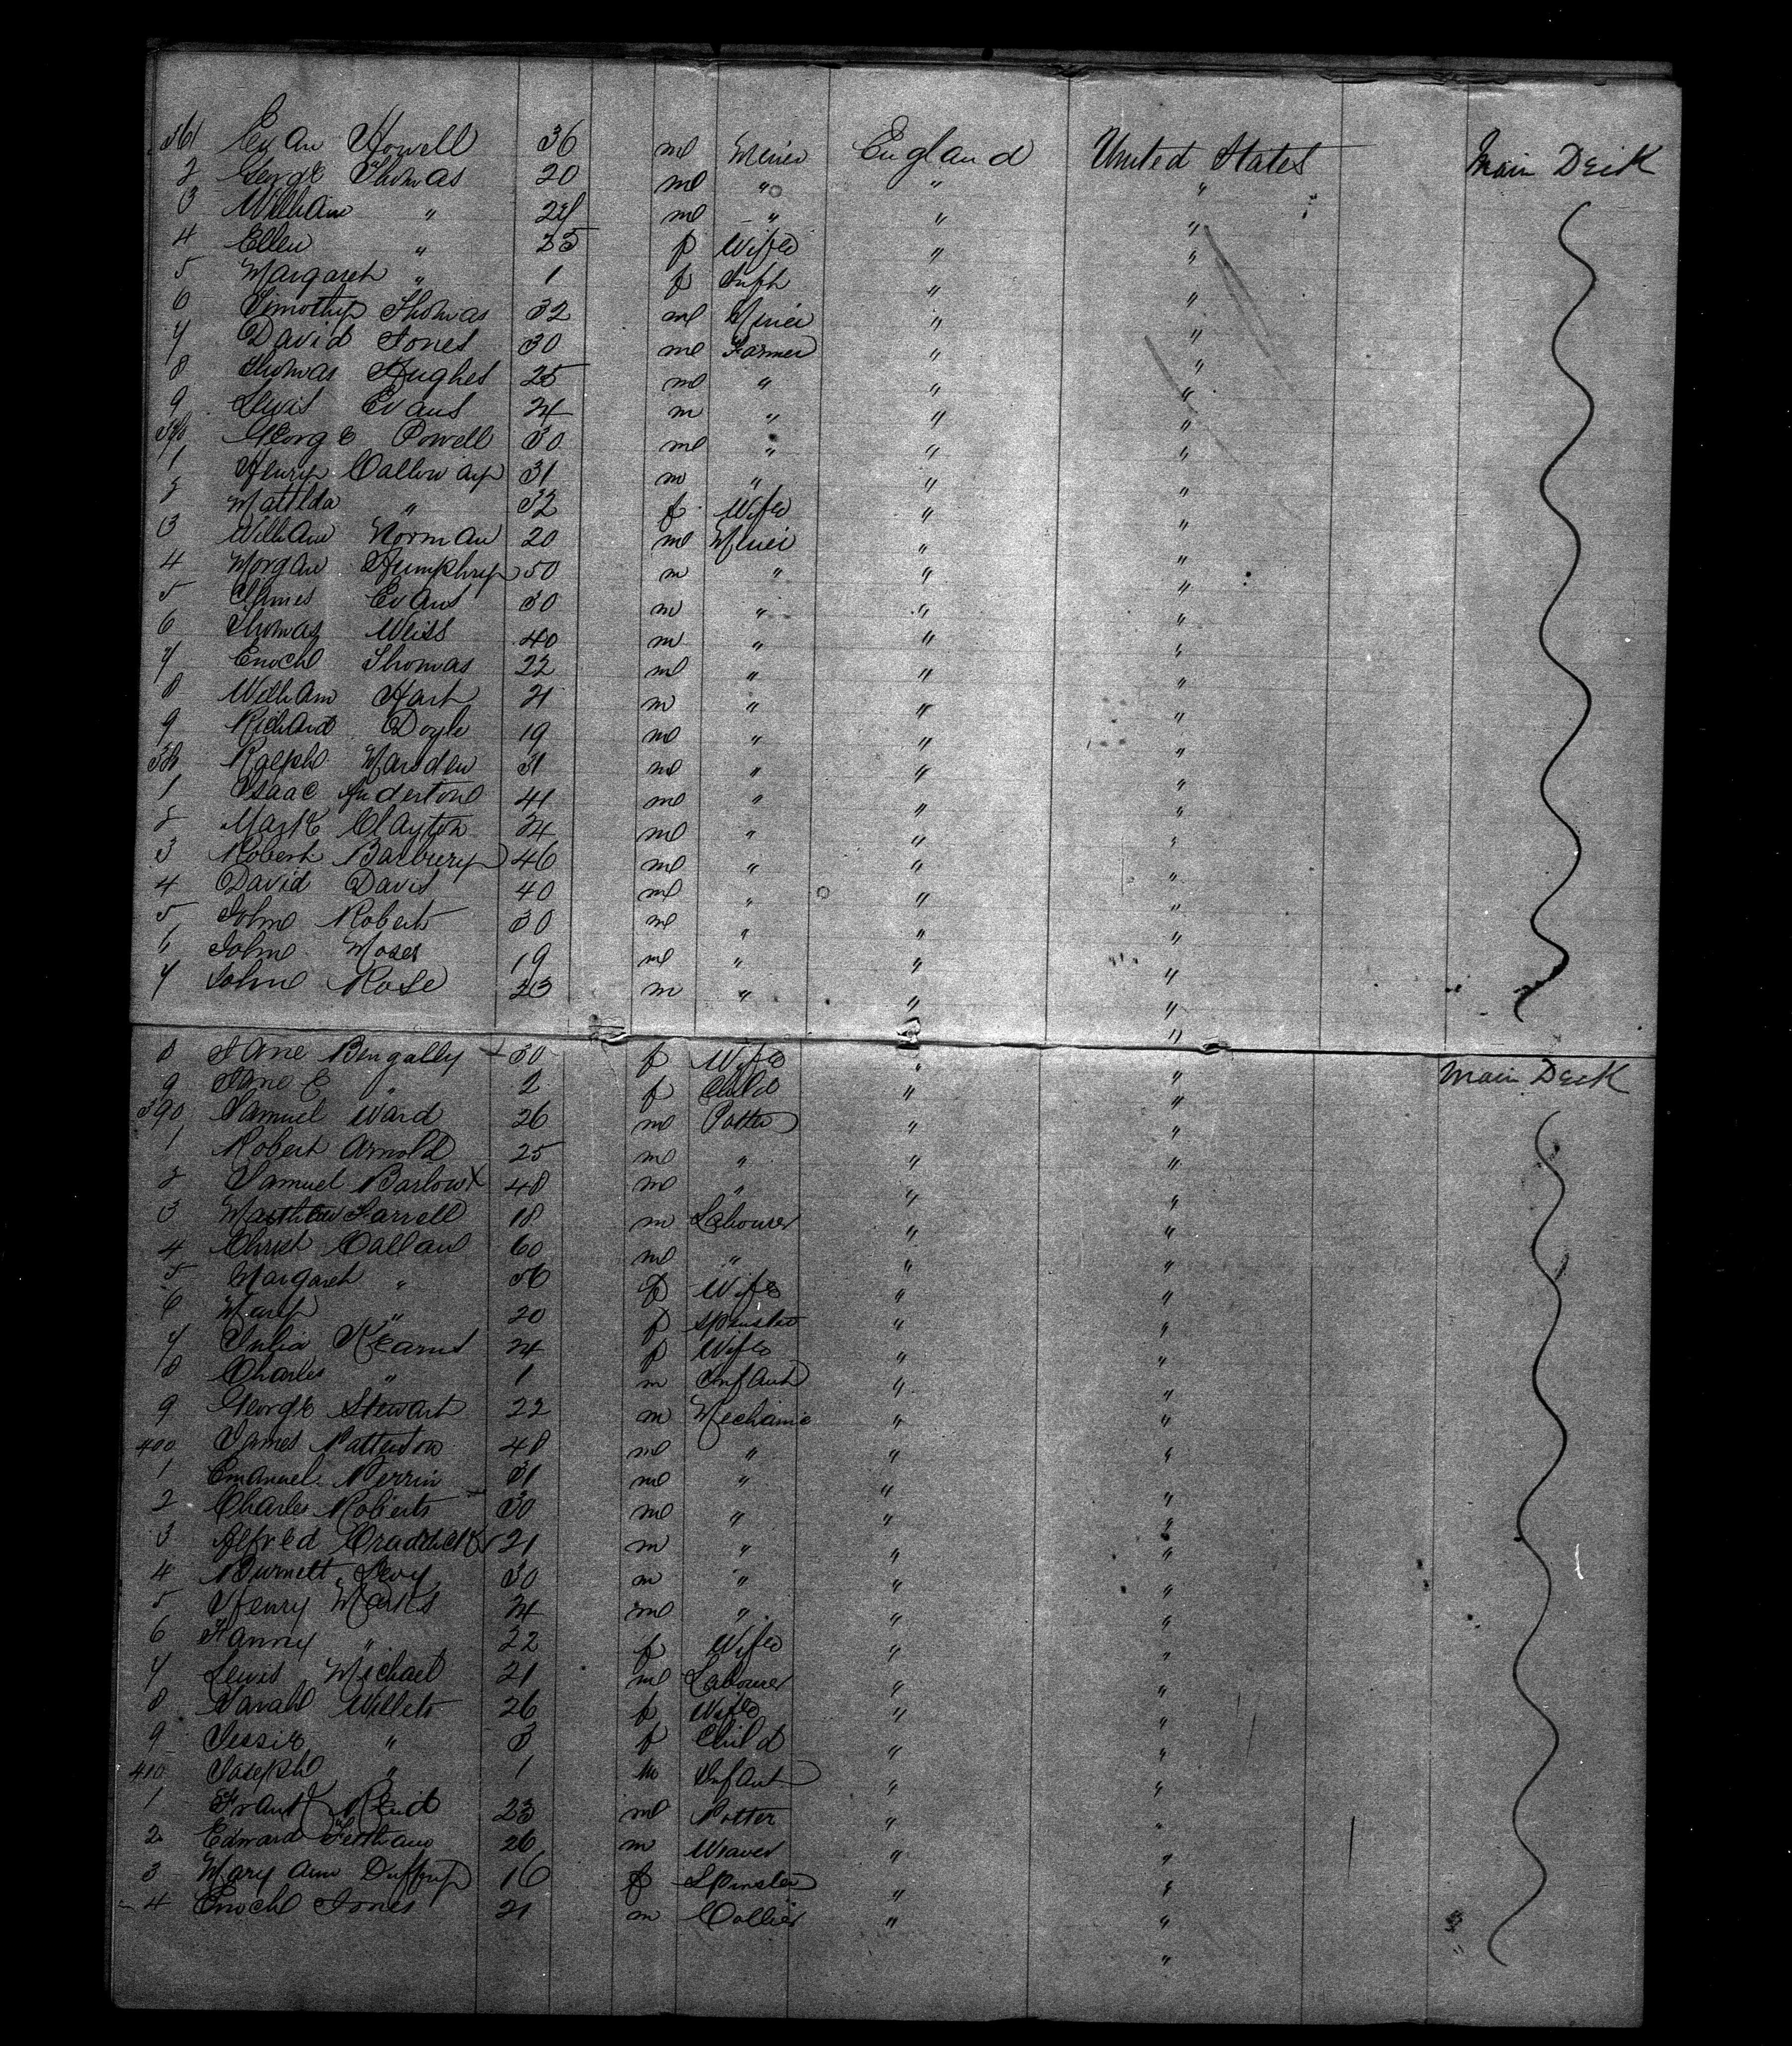 361 Evan Howell 36 m Miner England United States Main Deck
2 George Thomas 20 m " " "
3 William " 24 m " " "
4 Ellen " 25 f Wife " "
5 Margaret " 1 f Inft " "
6 Timothy Thomas 32 m Miner " "
7 David Jones 30 m Farmer " "
8 Thomas Hughes 25 m " " "
9 Lewis Evans 24 m " " "
370 George Powell 30 m " " "
1 Henry Calloway 31 m " " "
2 Matilda " 32 f Wife " "
3 William Norman 20 m Miner " "
4 Morgan Humphry 50 m " " "
5 James Evans 30 m " " "
6 Thomas Weiss 40 m " " "
7 Enoch Thomas 22 m " " "
8 William Hart 21 m " " "
9 Richard Doyle 19 m " " "
380 Ralph Marsden 31 m " " "
1 Isaac Anderton 41 m " " "
2 Mark Clayton 24 m " " "
3 Robert Barbury 46 m " " "
4 David Davis 40 m " " "
5 John Roberts 30 m " " "
6 John Moses 19 m " " "
7 John Rose 23 m " " "
8 Jane Bengally + 30 f Wife " " Main Deck
9 Jane E " 2 f Child " "
390 Samuel Ward 26 m Potter " "
1 Robert Arnold 25 m " " "
2 Samuel Barlow X 48 m " " "
3 Matthew Farrell 18 m Labourer " "
4 Christ Callan 60 m " " "
5 Margaret " 56 f Wife " "
6 Mary " 20 f Spinster " "
7 Julia Kearns 24 f Wife " "
8 Charles " 1 m Infant " "
9 George Stewart 22 m Mechanic " "
400 James Patterson 48 m " " "
1 Emanuel Perrin 31 m " " "
2 Charles Roberts + 30 m " " "
3 Alfred Craddick 21 m " " "
4 Burnett Levy 30 m " " "
5 Henry Marks 24 m " " "
6 Fanny " 22 f Wife " "
7 Lewis Michael 21 m Labourer " "
8 Sarah Willets 26 f Wife " "
9 Jessie " 3 f Child " "
410 Joseph " 1 m Infant " "
1 Frank Reid 23 m Potter " "
2 Edward 26 m Weaver " "
3 Mary Ann Duffy 16 f Spinster " "
4 Enoch Jones 21 m Collier " "